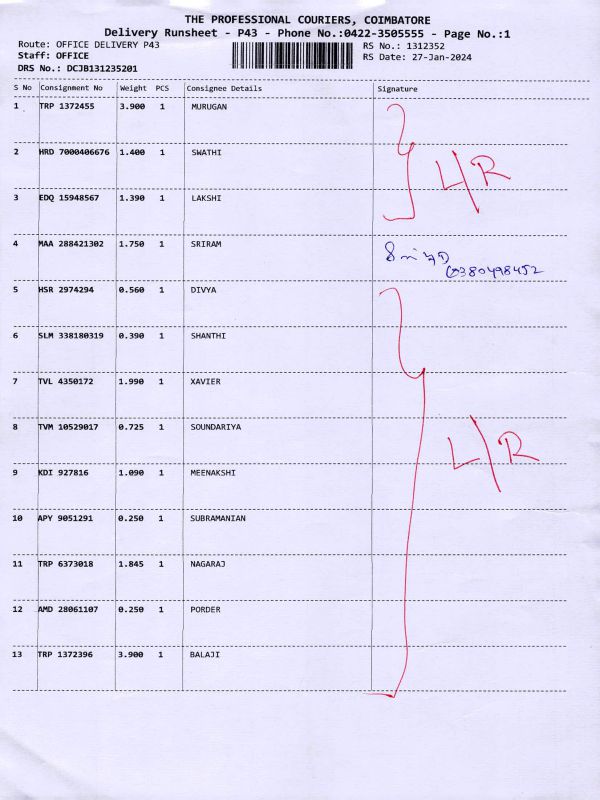 THE PROFESSIONAL COURIERS, COIMBATORE
Delivery Runsheet - P43 - Phone No.:0422-3505555 - Page No.:1
Route: OFFICE DELIVERY P43 RS No.: 1312352
Staff: OFFICE RS Date: 27-Jan-2024
DRS No.: DCJB131235201
S No Consignment No Weight PCS Consignee Details Signature
1 TRP 1372455 3.900 1 MURUGAN
2 HRD 7000406676 1.400 1 SWATHI
L/R
3 EDQ 15948567 1.390 1 LAKSHI
4 MAA 288421302 1.750 1 SRIRAM
5 HSR 2974294 0.560 1 DIVYA
6 SLM 338180319 0.390 1 SHANTHI
7 TVL 4350172 1.990 1 XAVIER
8 TVM 10529017 0.725 1 SOUNDARIYA
L/R
9 KDI 927816 1.090 1 MEENAKSHI
10 APY 9051291 0.250 1 SUBRAMANIAN
11 TRP 6373018 1.845 1 NAGARAJ
12 AMD 28061107 0.250 1 PORDER
13 TRP 1372396 3.900 1 BALAJI